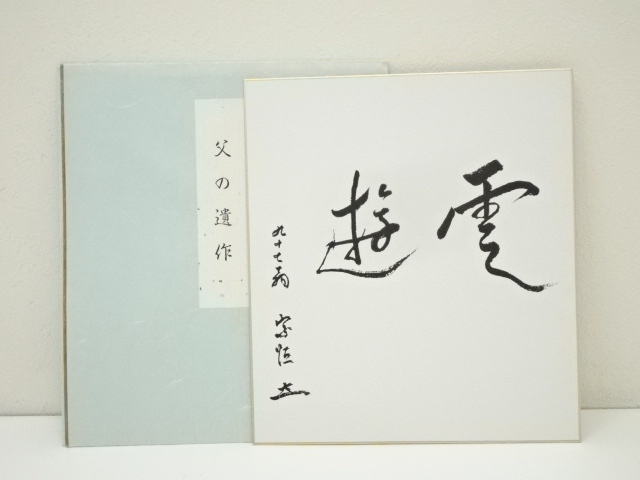 父の遺作
雲遊
九十七翁 宗恒